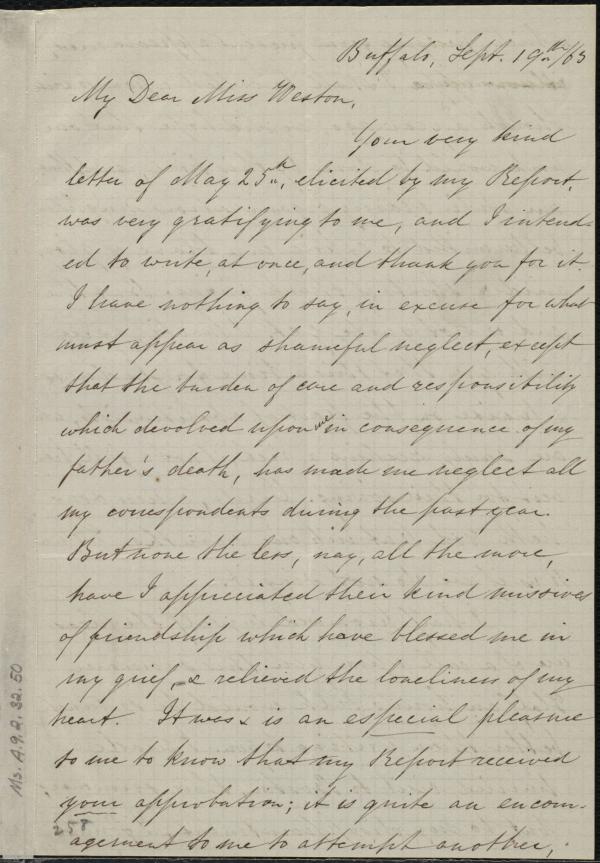 Buffalo, Sept. 19th/63
My Dear Miss Weston,
Your very kind
letter of May 25th, elicited by my Report,
was very gratifying to me, and I intend-
ed to write, at once, and thank you for it.
I have nothing to say, in excuse for what
must appear as shameful neglect, except
that the burden of care and responsibility
which devolved upon me in consequence of my
father's death, has made me neglect all
my correspondents during the past year.
But none the less, nay, all the more,
have I appreciated their kind missives
of friendship which have blessed me in
my grief, & relieved the loneliness of my
heart. It was & is an especial pleasure
to me to know that my Report received
your approbation; it is quite an encour-
agement to me to attempt another,
Ms. A.9.2.32.50